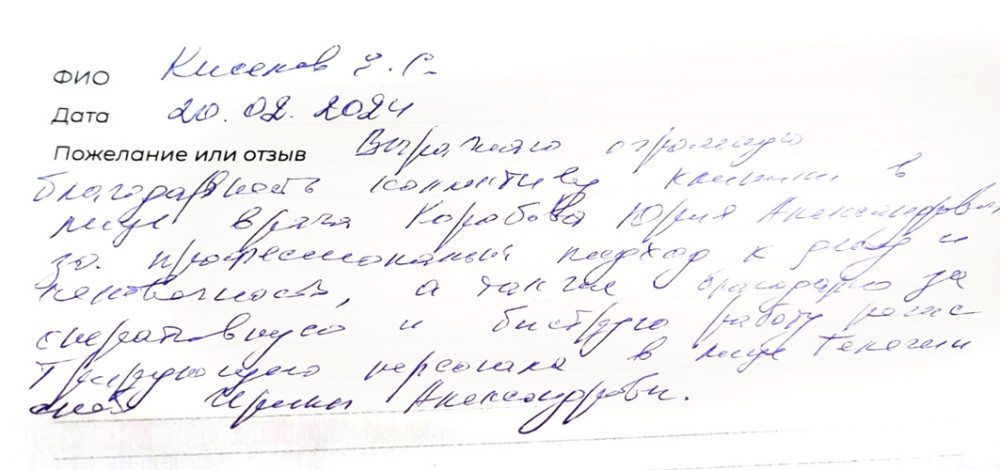 ФИО Киселов Е. С.
Дата 20.02.2024
Пожелание или отзыв Выражаю огромную
благодарность коллективу клиники в
лице врача Коробова Юрия Александровича
за профессиональный подход к делу и
человечность, а также благодарю за
оперативную и быструю работу регис
трирующего персонала в лице
Ирины Александровны.